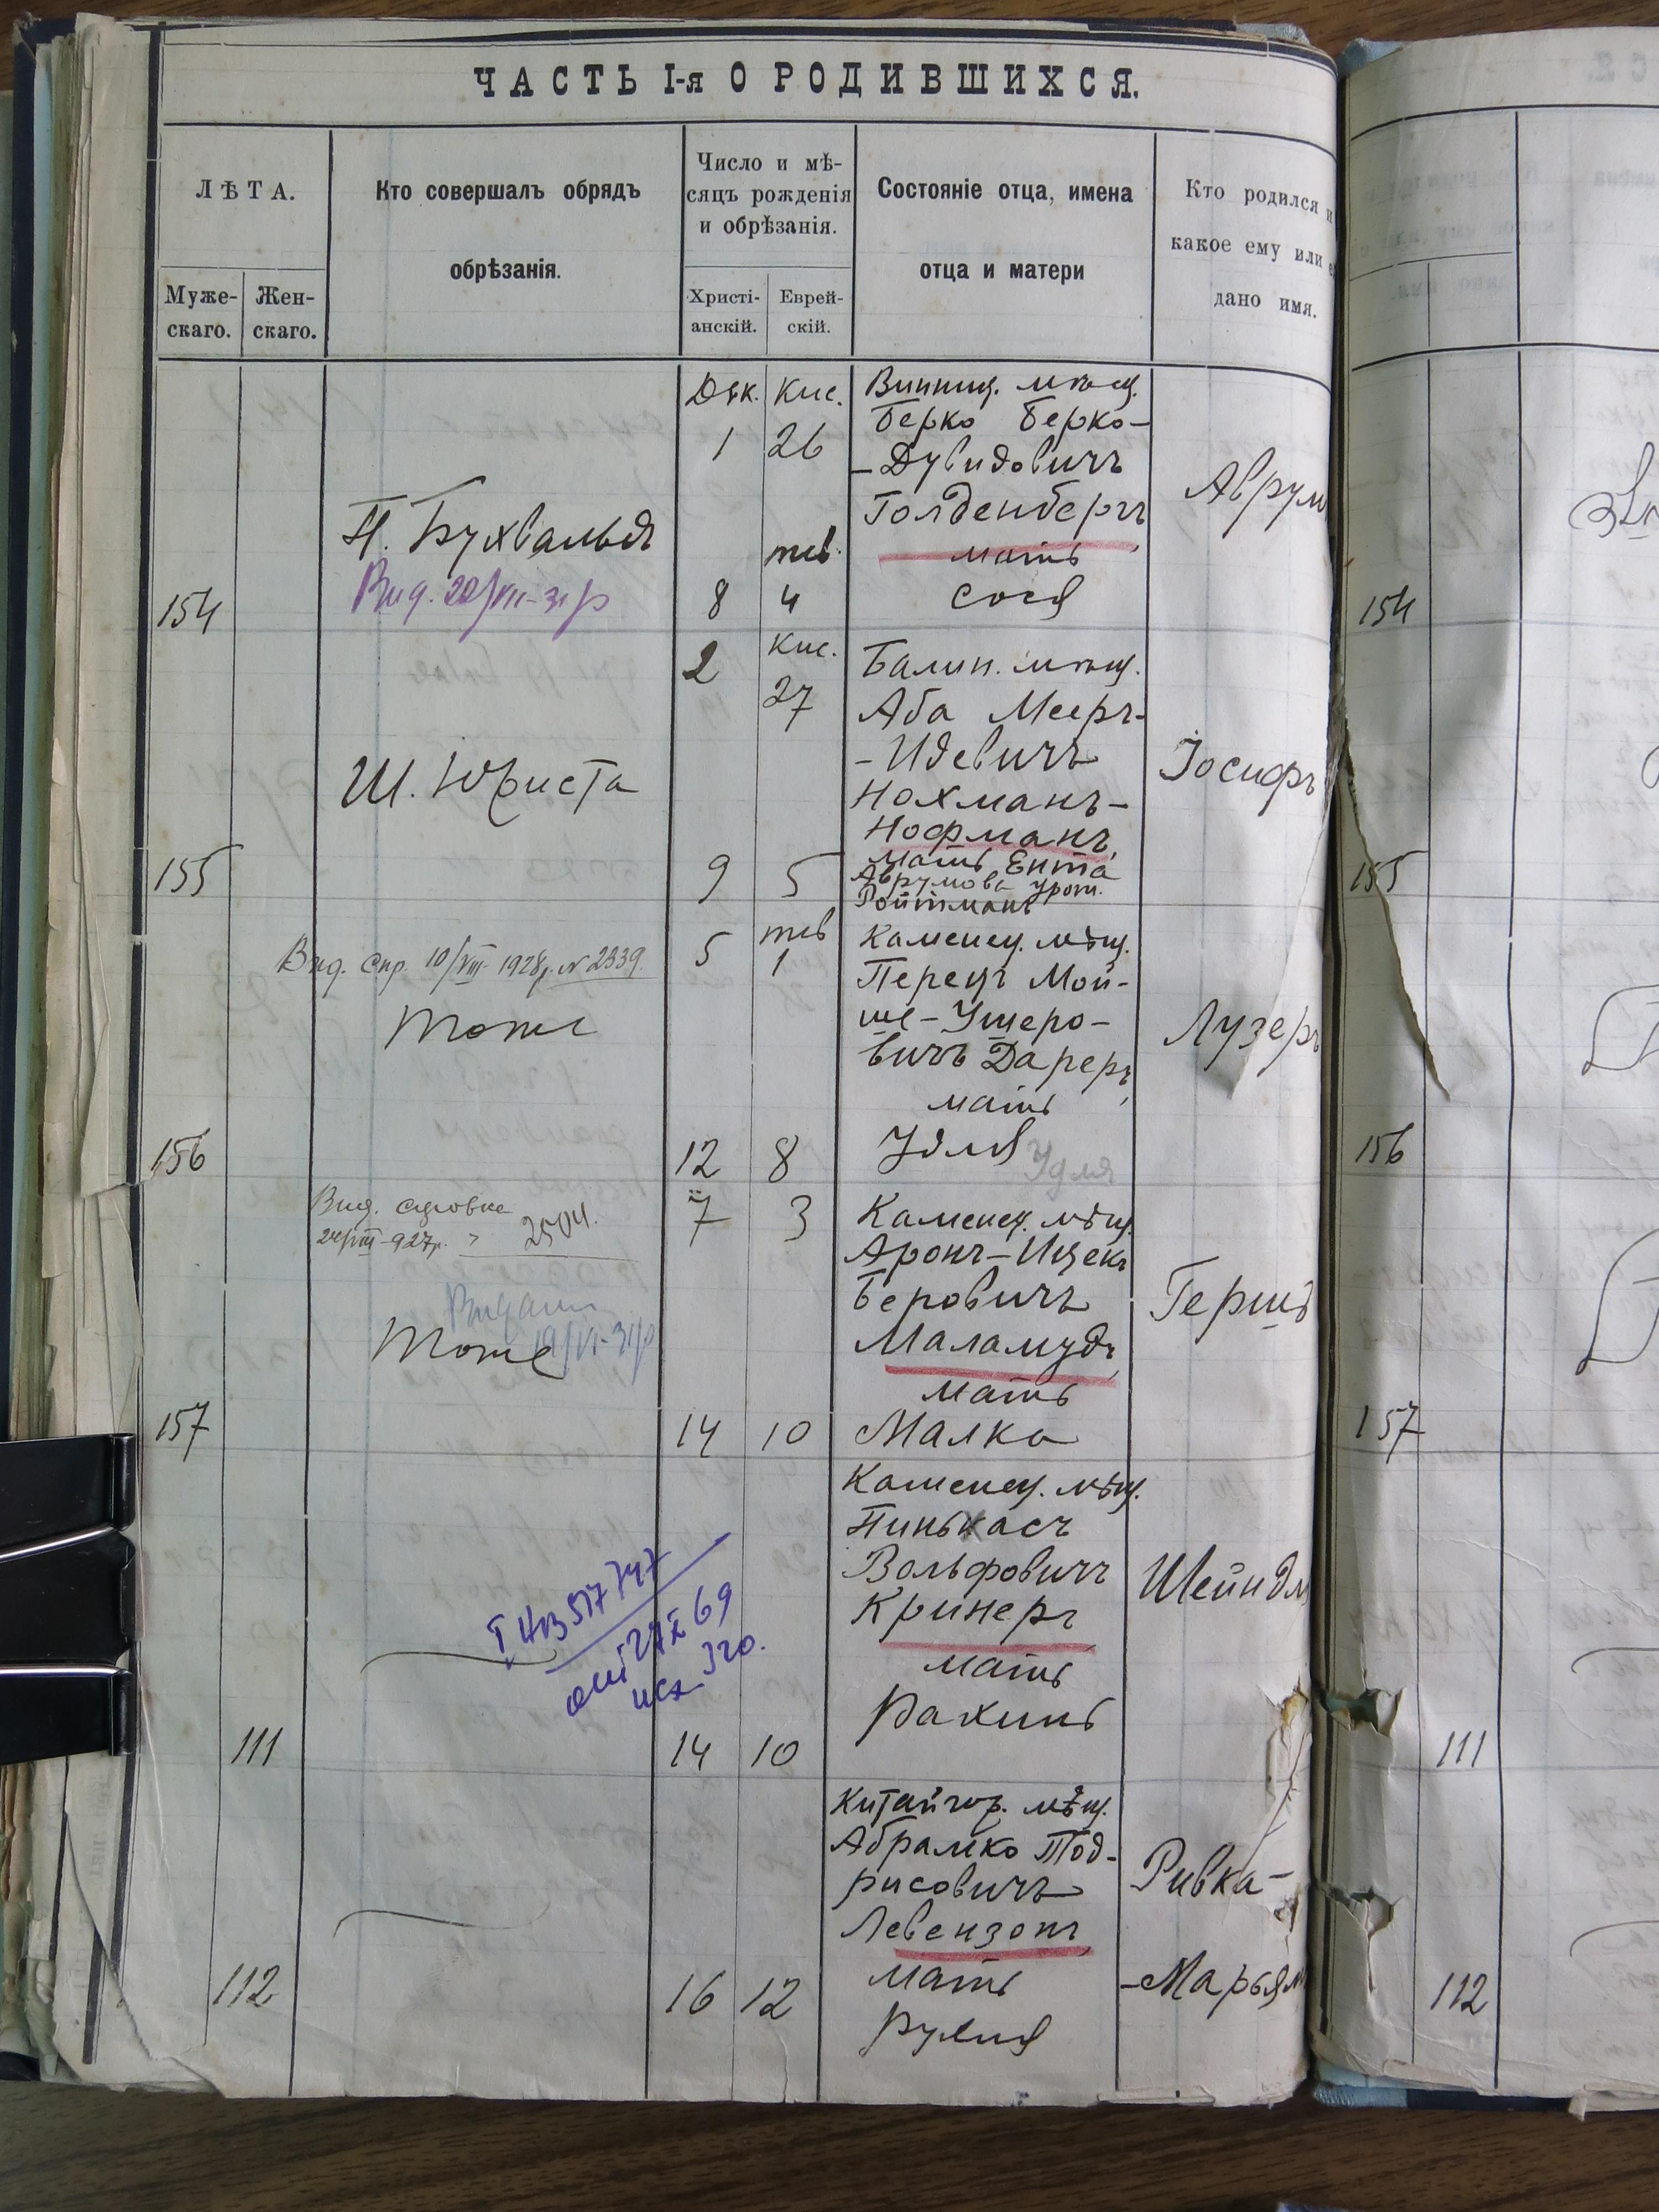 ЧАСТЬ I-я О РОДИВШИХСЯ.
ЛѢТА.
Муже-
скаго.
Жен-
скаго.
Кто совершалъ обрядъ
обрѣзанія.
Число и мѣ-
сяцъ рожденія
и обрѣзанія.
Христі-
анскій.
Еврей-
скій.
Состояніе отца, имена
отца и матери
Кто родился и
какое ему или
дано имя.
154
Н. Бухвальдъ
Вид. 20/VII-31р
Дек. Кис.
1 26
тев.
8 4
Винниц. мѣщ.
Берко Берко-
-Дувидовичъ
Голденбергъ
мать
Сося
Аврум
154
155
Ш. Юриста
Кис.
2 27
9 5
Балин. мѣщ.
Аба Мееръ-
-Идевичъ
Нохманъ-
Нофманъ,
мать Ента
Аврумова урож.
Ройтманъ
Іосифъ
155
156
Вид. спр. 10/VIII-1928р. N 2339.
Тоже
тев
5 1
12 8
Каменец. мѣщ.
Перецъ Мой-
ше-Ушеро-
вичъ Дареръ,
мать
Удля Удля
Лузеръ
156
157
Вид. справка
24/VIII-927р. 2504.
Видано
19/VI-31р
Тоже
7 3
14 10
Каменец. мѣщ.
Аронъ-Ицекъ
Беровичъ
Маламудъ,
мать
Малка
Гершъ
157
111
14 10
Каменец. мѣщ.
Пинькасъ
Вольфовичъ
Кринеръ
мать
Рахиль
Шейндл
111
112
16 12
Китайгор. мѣщ.
Абрамко Тод-
рисовичъ
Левензонъ,
мать
Рухля
Ривка-
-Марьям
112